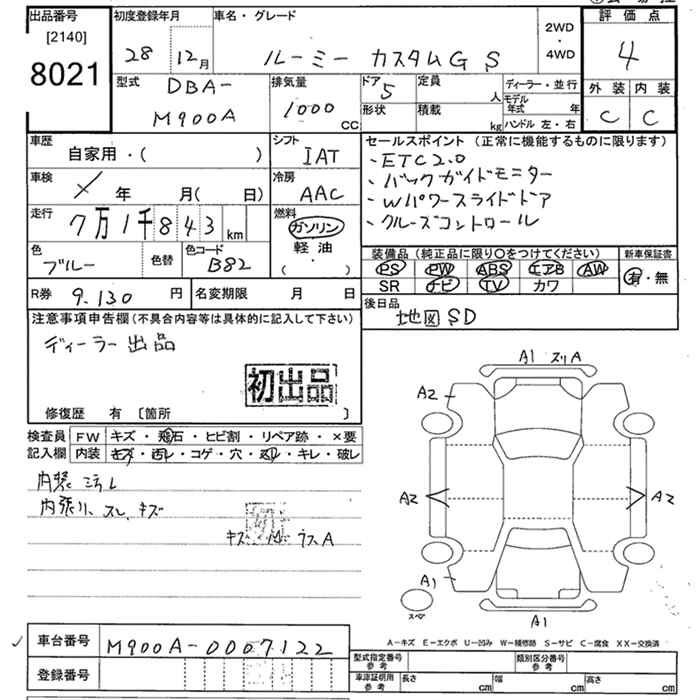 出品番号 初度登録年月 車名・グレード 評価点
[2140] 28年 12月 ルーミー カスタムG S 2WD・4WD 4
8021
型式 DBA-M900A 排気量 1000 CC ドア 5 定員 人 ディーラー・並行 外装 内装
形状 積載 kg モデル年式 年 ハンドル 左・右 C C
車歴 自家用・( ) シフト IAT セールスポイント (正常に機能するものに限ります)
・ETC2.0
車検 年 月( 日) 冷房 AAC ・バックガイドモニター
・Wパワースライドドア
走行 7万1千843 km 燃料 ガソリン 軽油 ( ・ ) ・クルーズコントロール
色 ブルー 色替 色コード B82 装備品 (純正品に限り○をつけてください) 新車保証書
PS PW ABS エアB AW 有・無
SR ナビ TV カワ
R券 9.130 円 名変期限 月 日 後日品
地図 SD
注意事項申告欄 (不具合内容等は具体的に記入して下さい)
ディーラー出品
初出品
修復歴 有 [箇所 ]
検査員 FW キズ・飛石・ヒビ割・リペア跡・×要
記入欄 内装 キズ・汚レ・コゲ・穴・スレ・キレ・破レ
内張り、スレ、キズ
A1 スリA
A2
A2 A2
A1
スペア A1
A-キズ E-エクボ U-凹み W-補修跡 S-サビ C-腐食 XX-交換済
車台番号 M900A-0007122
登録番号
型式指定番号 参考 類別区分番号 参考
車庫証明用 参考 長さ cm 幅 cm 高さ cm